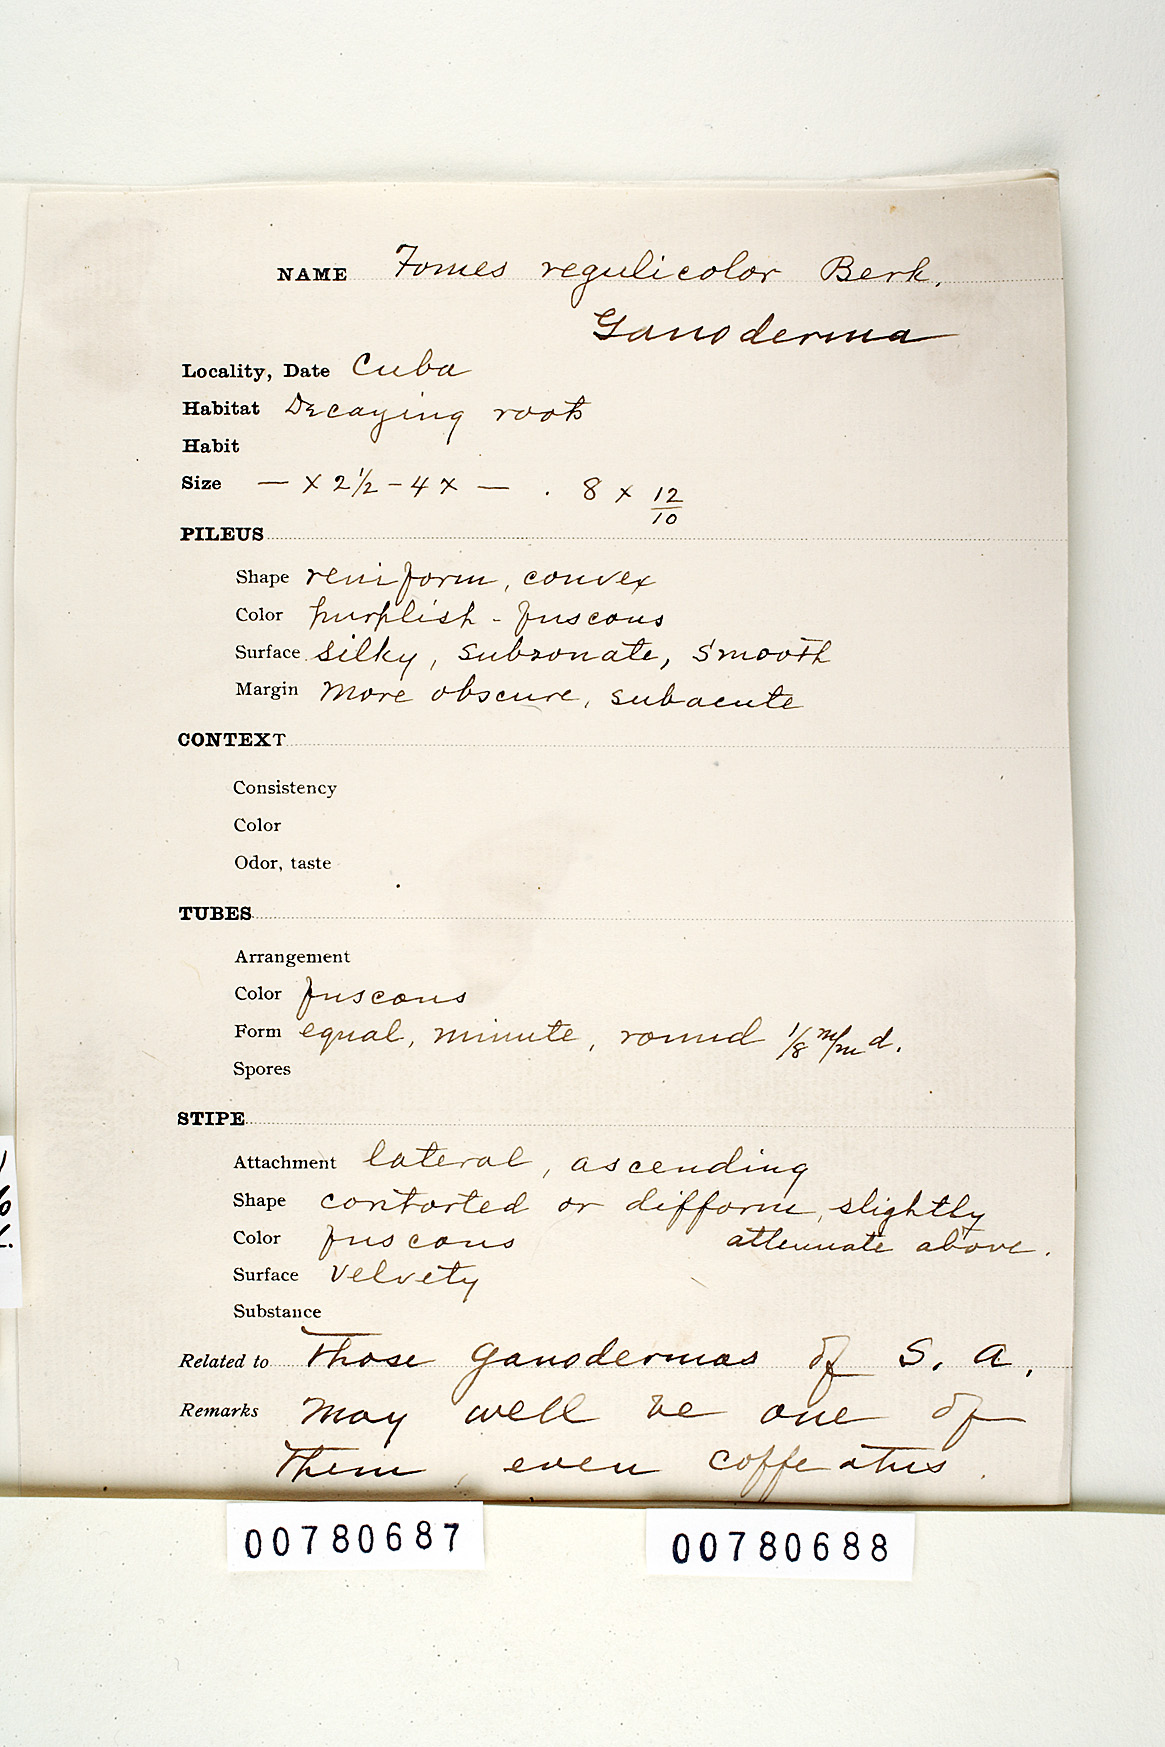 NAME Fomes regulicolor Berk.
Ganoderma
Locality, Date Cuba
Habitat Decaying roots
Habit
Size — x 2½ - 4 x — . 8 x 12/10
PILEUS
Shape reniform, convex
Color purplish - fuscous
Surface silky, subzonate, smooth
Margin more obscure, subacute
CONTEXT
Consistency
Color
Odor, taste
TUBES
Arrangement
Color fuscous
Form equal, minute, round 1/8 m/m d.
Spores
STIPE
Attachment lateral, ascending
Shape contorted or difform, slightly
attenuate above.
Color fuscous
Surface velvety
Substance
Related to Those Ganodermas of S. A.
Remarks May well be one of
them, even coffeatus.
00780687 00780688